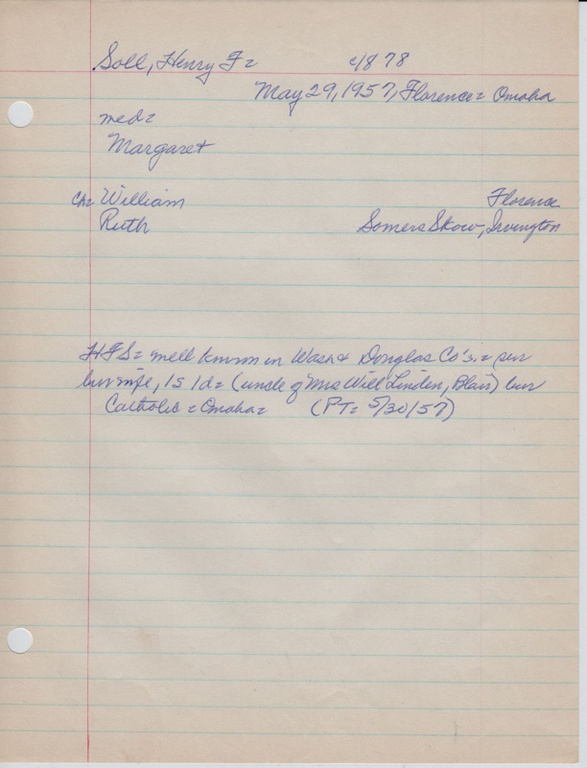 Soll, Henry F= c/8 78
May 29, 1957, Florence= Omaha
med=
Margaret
Ch= William Florence
Ruth Somers Skow, Irvington
HFS= well known in Wash & Douglas Co's.= sur
by wife, 1s 1d= (uncle of Mrs Will Linden, Blair) bur
Catholic = Omaha= (PT= 5/30/57)